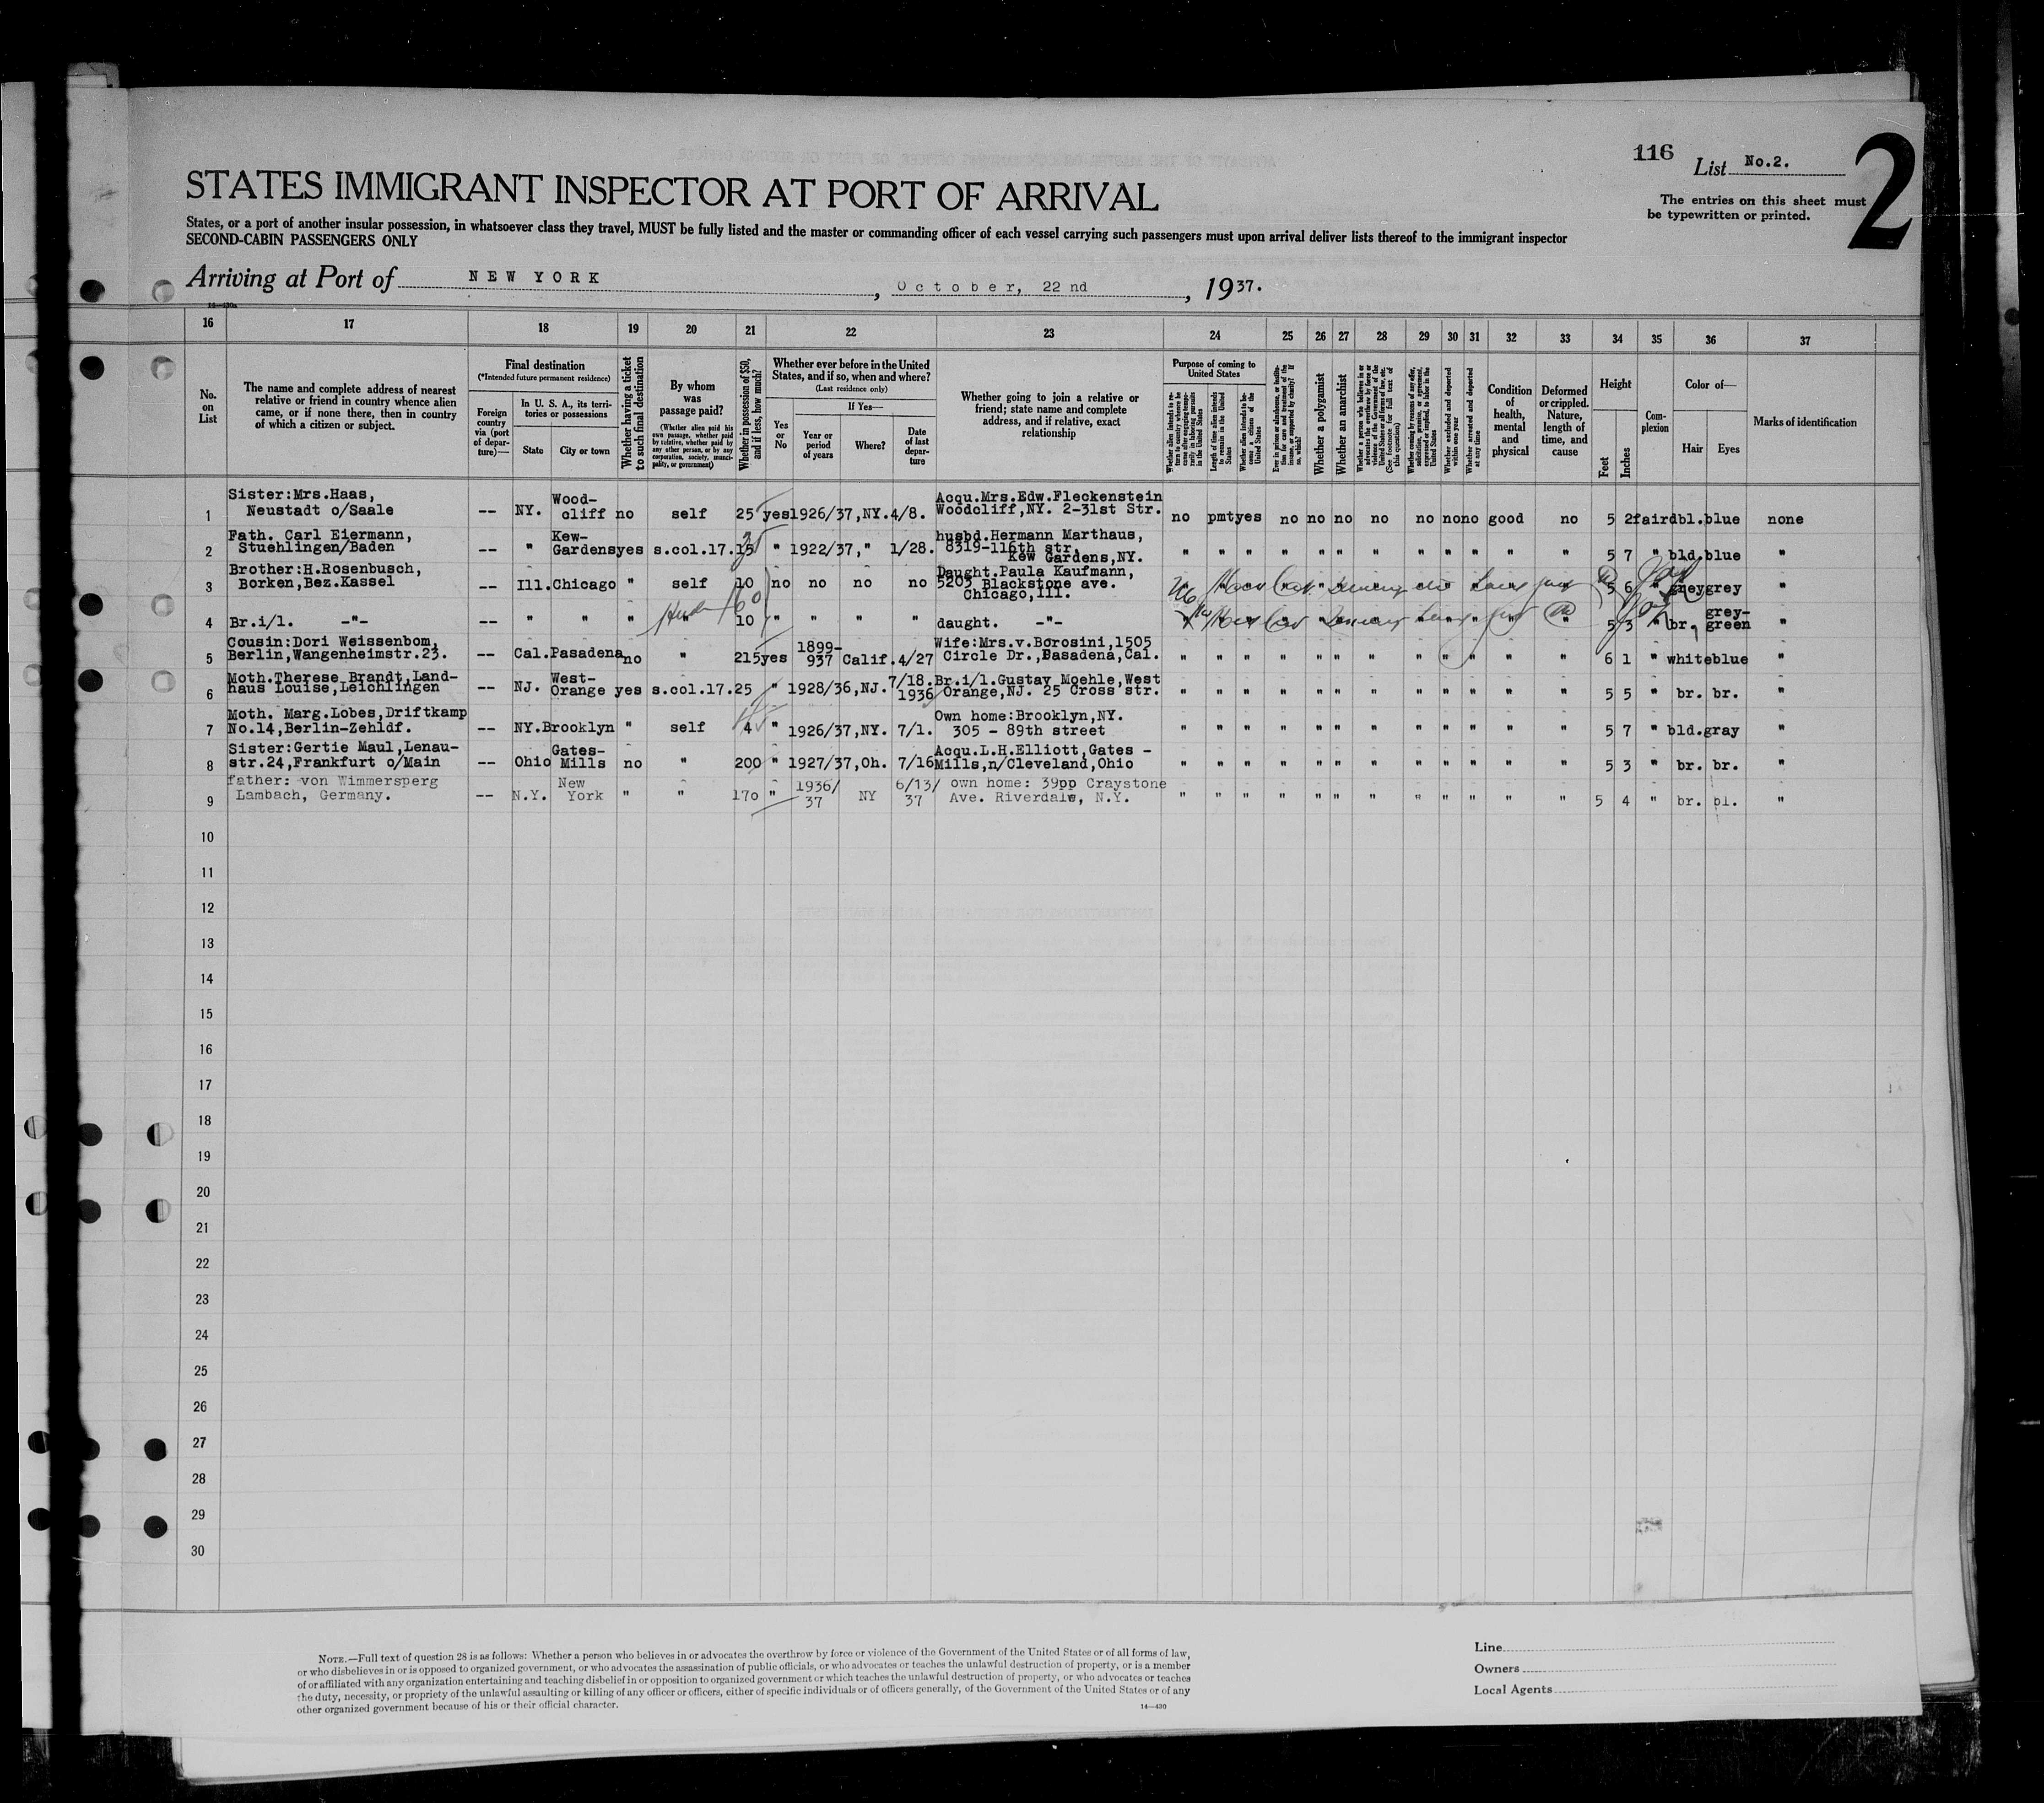 116
List No.2.
2
The entries on this sheet must
be typewritten or printed.
STATES IMMIGRANT INSPECTOR AT PORT OF ARRIVAL
States, or a port of another insular possession, in whatsoever class they travel, MUST be fully listed and the master or commanding officer of each vessel carrying such passengers must upon arrival deliver lists thereof to the immigrant inspector
SECOND-CABIN PASSENGERS ONLY
Arriving at Port of NEW YORK, October, 22 nd, 1937.
16 17 18 19 20 21 22 23 24 25 26 27 28 29 30 31 32 33 34 35 36 37
No.
on
List
The name and complete address of nearest
relative or friend in country whence alien
came, or if none there, then in country
of which a citizen or subject.
Final destination
(*Intended future permanent residence)
Foreign
country
via (port
of depar-
ture)—
In U. S. A., its terri-
tories or possessions
State
City or town
Whether having a ticket
to such final destination
By whom
was
passage paid?
(Whether alien paid his
own passage, whether paid
by relative, whether paid by
any other person, or by any
corporation, society, munici-
pality, or government)
Whether in possession of $50,
and if less, how much?
Whether ever before in the United
States, and if so, when and where?
(Last residence only)
Yes
or
No
If Yes—
Year or
period
of years
Where?
Date
of last
depar-
ture
Whether going to join a relative or
friend; state name and complete
address, and if relative, exact
relationship
Purpose of coming to
United States
Length of time alien intends
to remain in the United
States
Whether alien intends to be-
come a citizen of the
United States
Whether a polygamist
Whether an anarchist
Whether excluded and deported
within one year
Whether arrested and deported
at any time
Condition
of
health,
mental
and
physical
Deformed
or crippled.
Nature,
length of
time, and
cause
Height
Feet
Inches
Com-
plexion
Color of—
Hair
Eyes
Marks of identification
Sister:Mrs.Haas,
1 Neustadt o/Saale -- NY. Wood-
cliff no self 25 yes 1926/37,NY. 4/8. Acqu.Mrs.Edw.Fleckenstein
Woodcliff,NY. 2-31st Str. no pmt yes no no no no no no no good no 5 2 fair dbl. blue none
Fath. Carl Eiermann,
2 Stuehlingen/Baden -- " Kew-
Gardens yes s.col.17. 15 " 1922/37," 1/28. husbd.Hermann Marthaus,
8319-116th str.
Kew Gardens,NY. " " " " " " " " " " " " 5 7 " bld. blue "
Brother:H.Rosenbusch,
3 Borken,Bez.Kassel -- Ill. Chicago " self 10 no no no no Daught.Paula Kaufmann,
5203 Blackstone ave.
Chicago,Ill. 5 6 " grey grey "
4 Br.i/l. -"- -- " " " " 10 " " " " daught. -"- 5 3 " br. grey-
green "
Cousin:Dori Weissenbom,
5 Berlin,Wangenheimstr.23. -- Cal. Pasadena no " 215 yes 1899-
937 Calif. 4/27 Wife:Mrs.v.Borosini,1505
Circle Dr.,Basadena,Cal. " " " " " " " " " " " " 6 1 " white blue "
Moth.Therese Brandt,Land-
6 haus Louise,Leichlingen -- NJ. West-
Orange yes s.col.17. 25 " 1928/36,NJ. 7/18.
1936 Br.i/l.Gustav Moehle,West
Orange,NJ. 25 Cross str. " " " " " " " " " " " " 5 5 " br. br. "
Moth. Marg.Lobes,Driftkamp
7 No.14,Berlin-Zehldf. -- NY. Brooklyn " self 4 " 1926/37,NY. 7/1. Own home:Brooklyn,NY.
305 - 89th street " " " " " " " " " " " " 5 7 " bld. gray "
Sister:Gertie Maul,Lenau-
8 str.24,Frankfurt o/Main -- Ohio Gates-
Mills no " 200 " 1927/37,Oh. 7/16 Acqu.L.H.Elliott,Gates -
Mills,n/Cleveland,Ohio " " " " " " " " " " " " 5 3 " br. br. "
father: von Wimmersperg
9 Lambach, Germany. -- N.Y. New
York " " 170 " 1936/
37 NY 6/13/
37 own home: 39pp Craystone
Ave. Riverdale, N.Y. " " " " " " " " " " " " 5 4 " br. bl. "
10
11
12
13
14
15
16
17
18
19
20
21
22
23
24
25
26
27
28
29
30
NOTE.—Full text of question 28 is as follows: Whether a person who believes in or advocates the overthrow by force or violence of the Government of the United States or of all forms of law,
or who disbelieves in or is opposed to organized government, or who advocates the assassination of public officials, or who advocates or teaches the unlawful destruction of property, or is a member
of or affiliated with any organization entertaining and teaching disbelief in or opposition to organized government or which teaches the unlawful destruction of property, or who advocates or teaches
the duty, necessity, or propriety of the unlawful assaulting or killing of any officer or officers, either of specific individuals or of officers generally, of the Government of the United States or of any
other organized government because of his or their official character.
14—430
Line
Owners
Local Agents